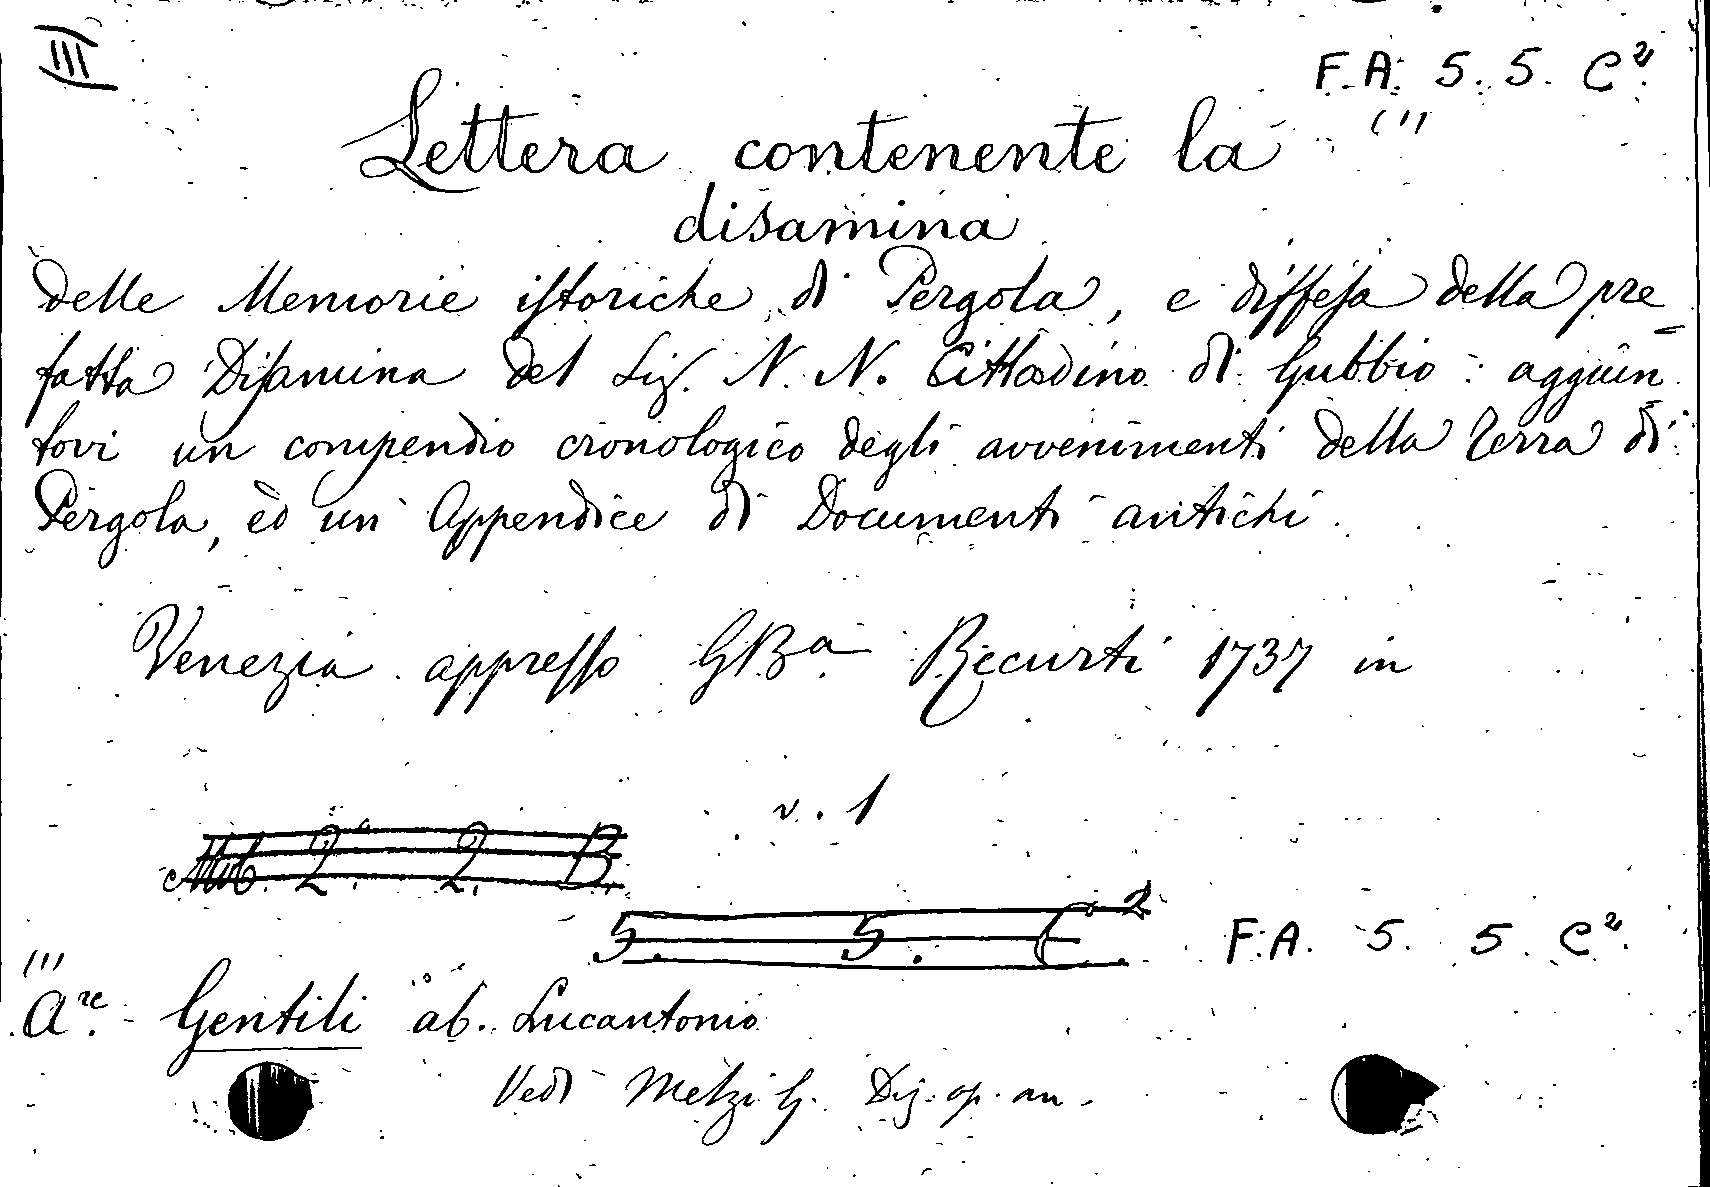 III
F. A. 5. 5. C²
(1)
Lettera contenente la
disamina
delle Memorie istoriche di Pergola, e diffesa della pre=
fatta Disamina del Sig. N. N. Cittadino di Gubbio: aggiun=
tovi un compendio cronologico degli avvenimenti della Terra di
Pergola, ed un Appendice di Documenti antichi.
Venezia appresso GBa Recurti 1737 in
v. 1
2. 2. B.
5. 5. C.²
F. A. 5. 5. C².
(1)
Are. - Gentili ab. Lucantonio
Vedi Melzi G. Diz. op. an.